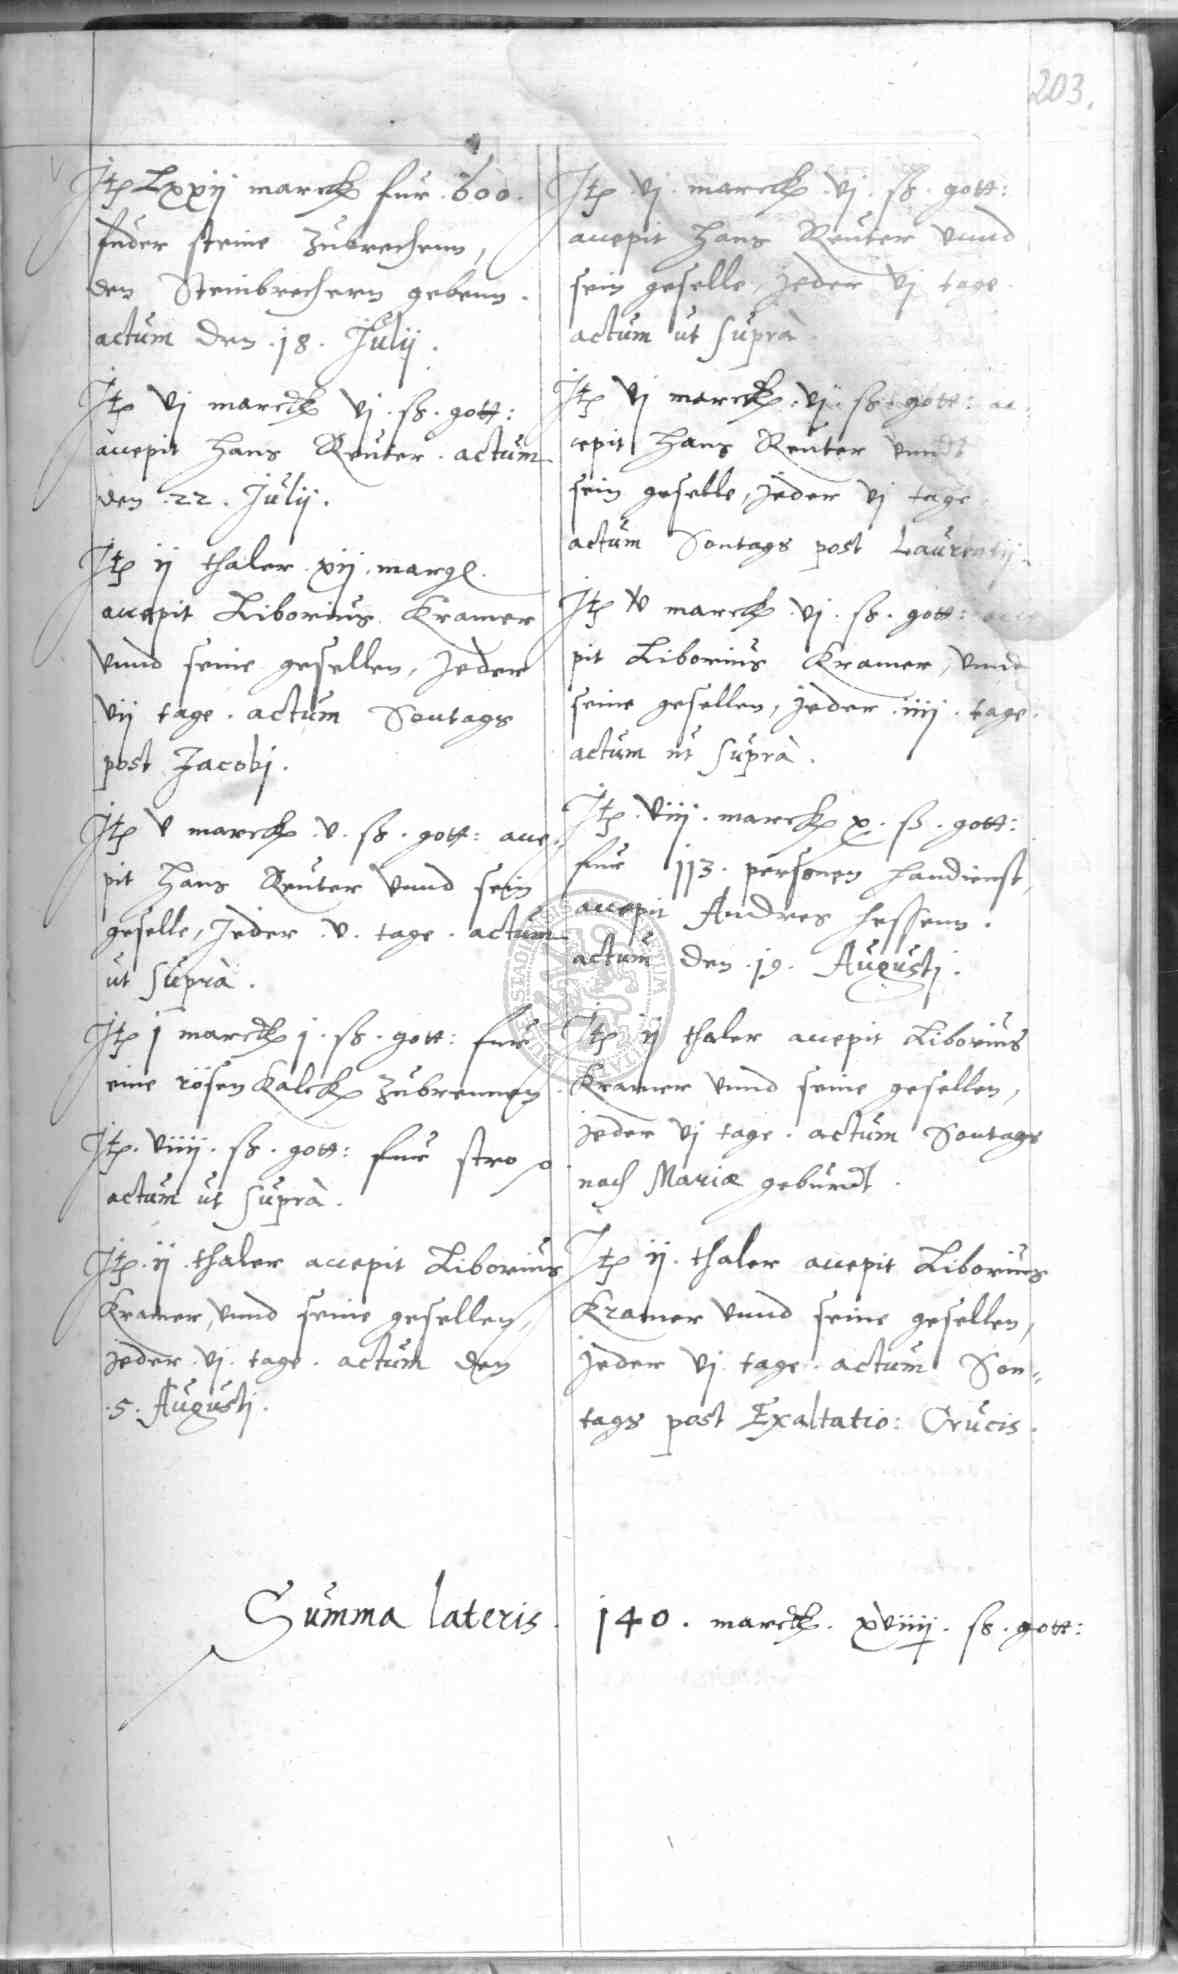 203.
Itē Lxxij marck fur .600.
fuder steine zubrechenn,
den Steinbrechern gebenn.
actum den .18. Julij.
Itē vj marck vj. ß. gott:
accepit Hans Reuter. actum
den .22. Julij.
Itē ij thaler xij. marg.
accepit Liborius Kramer
vnnd seine gesellen, Jeder
vij tage. actum Sontags
post Jacobj.
Itē v marck .v. ß. gott: acce,
pit Hans Reuter vnnd sein
geselle, Jeder .v. tage. actum
ut suprà.
Itē j marck j. ß. gott: fur
eine rösen Kalck zubrennen.
Itē. viiij. ß. gott: fur stro
actum ut suprà.
Itē. ij. thaler accepit Liborius
Kramer, vnnd seine gesellen,
jeder .vj. tage. actum den
.5. Augustj.
Itē .vj. marck .vj. ß. gott:
accepit Hans Reuter vnnd
sein geselle, jeder vj tage.
actum ut suprà
Itē vj marck .vj. ß. gott: ac,
cepit Hans Reuter vnndt
sein geselle, Jeder vj tage
actum Sontags post Laurentij.
Itē v marck .vj. ß. gott: acce
pit Liborius Kramer, vnnd
seine gesellen, jeder .iiij. tage.
actum ut suprà.
Itē. viij. marck x. ß. gott:
fur 113. personen handienst,
accepit Andres Hessenn.
actum den .19. Augustj.
Itē ij thaler accepit Liborius
Kramer vnnd seine gesellen,
jeder vj tage. actum Sontags
nach Mariæ geburdt.
Itē ij. thaler accepit Liborius
Kramer vnnd seine gesellen,
Jeder vj. tage. actum Son„
tags post Exaltatio: Crucis.
Summa lateris. 140. marck. xviiij. ß. gott: